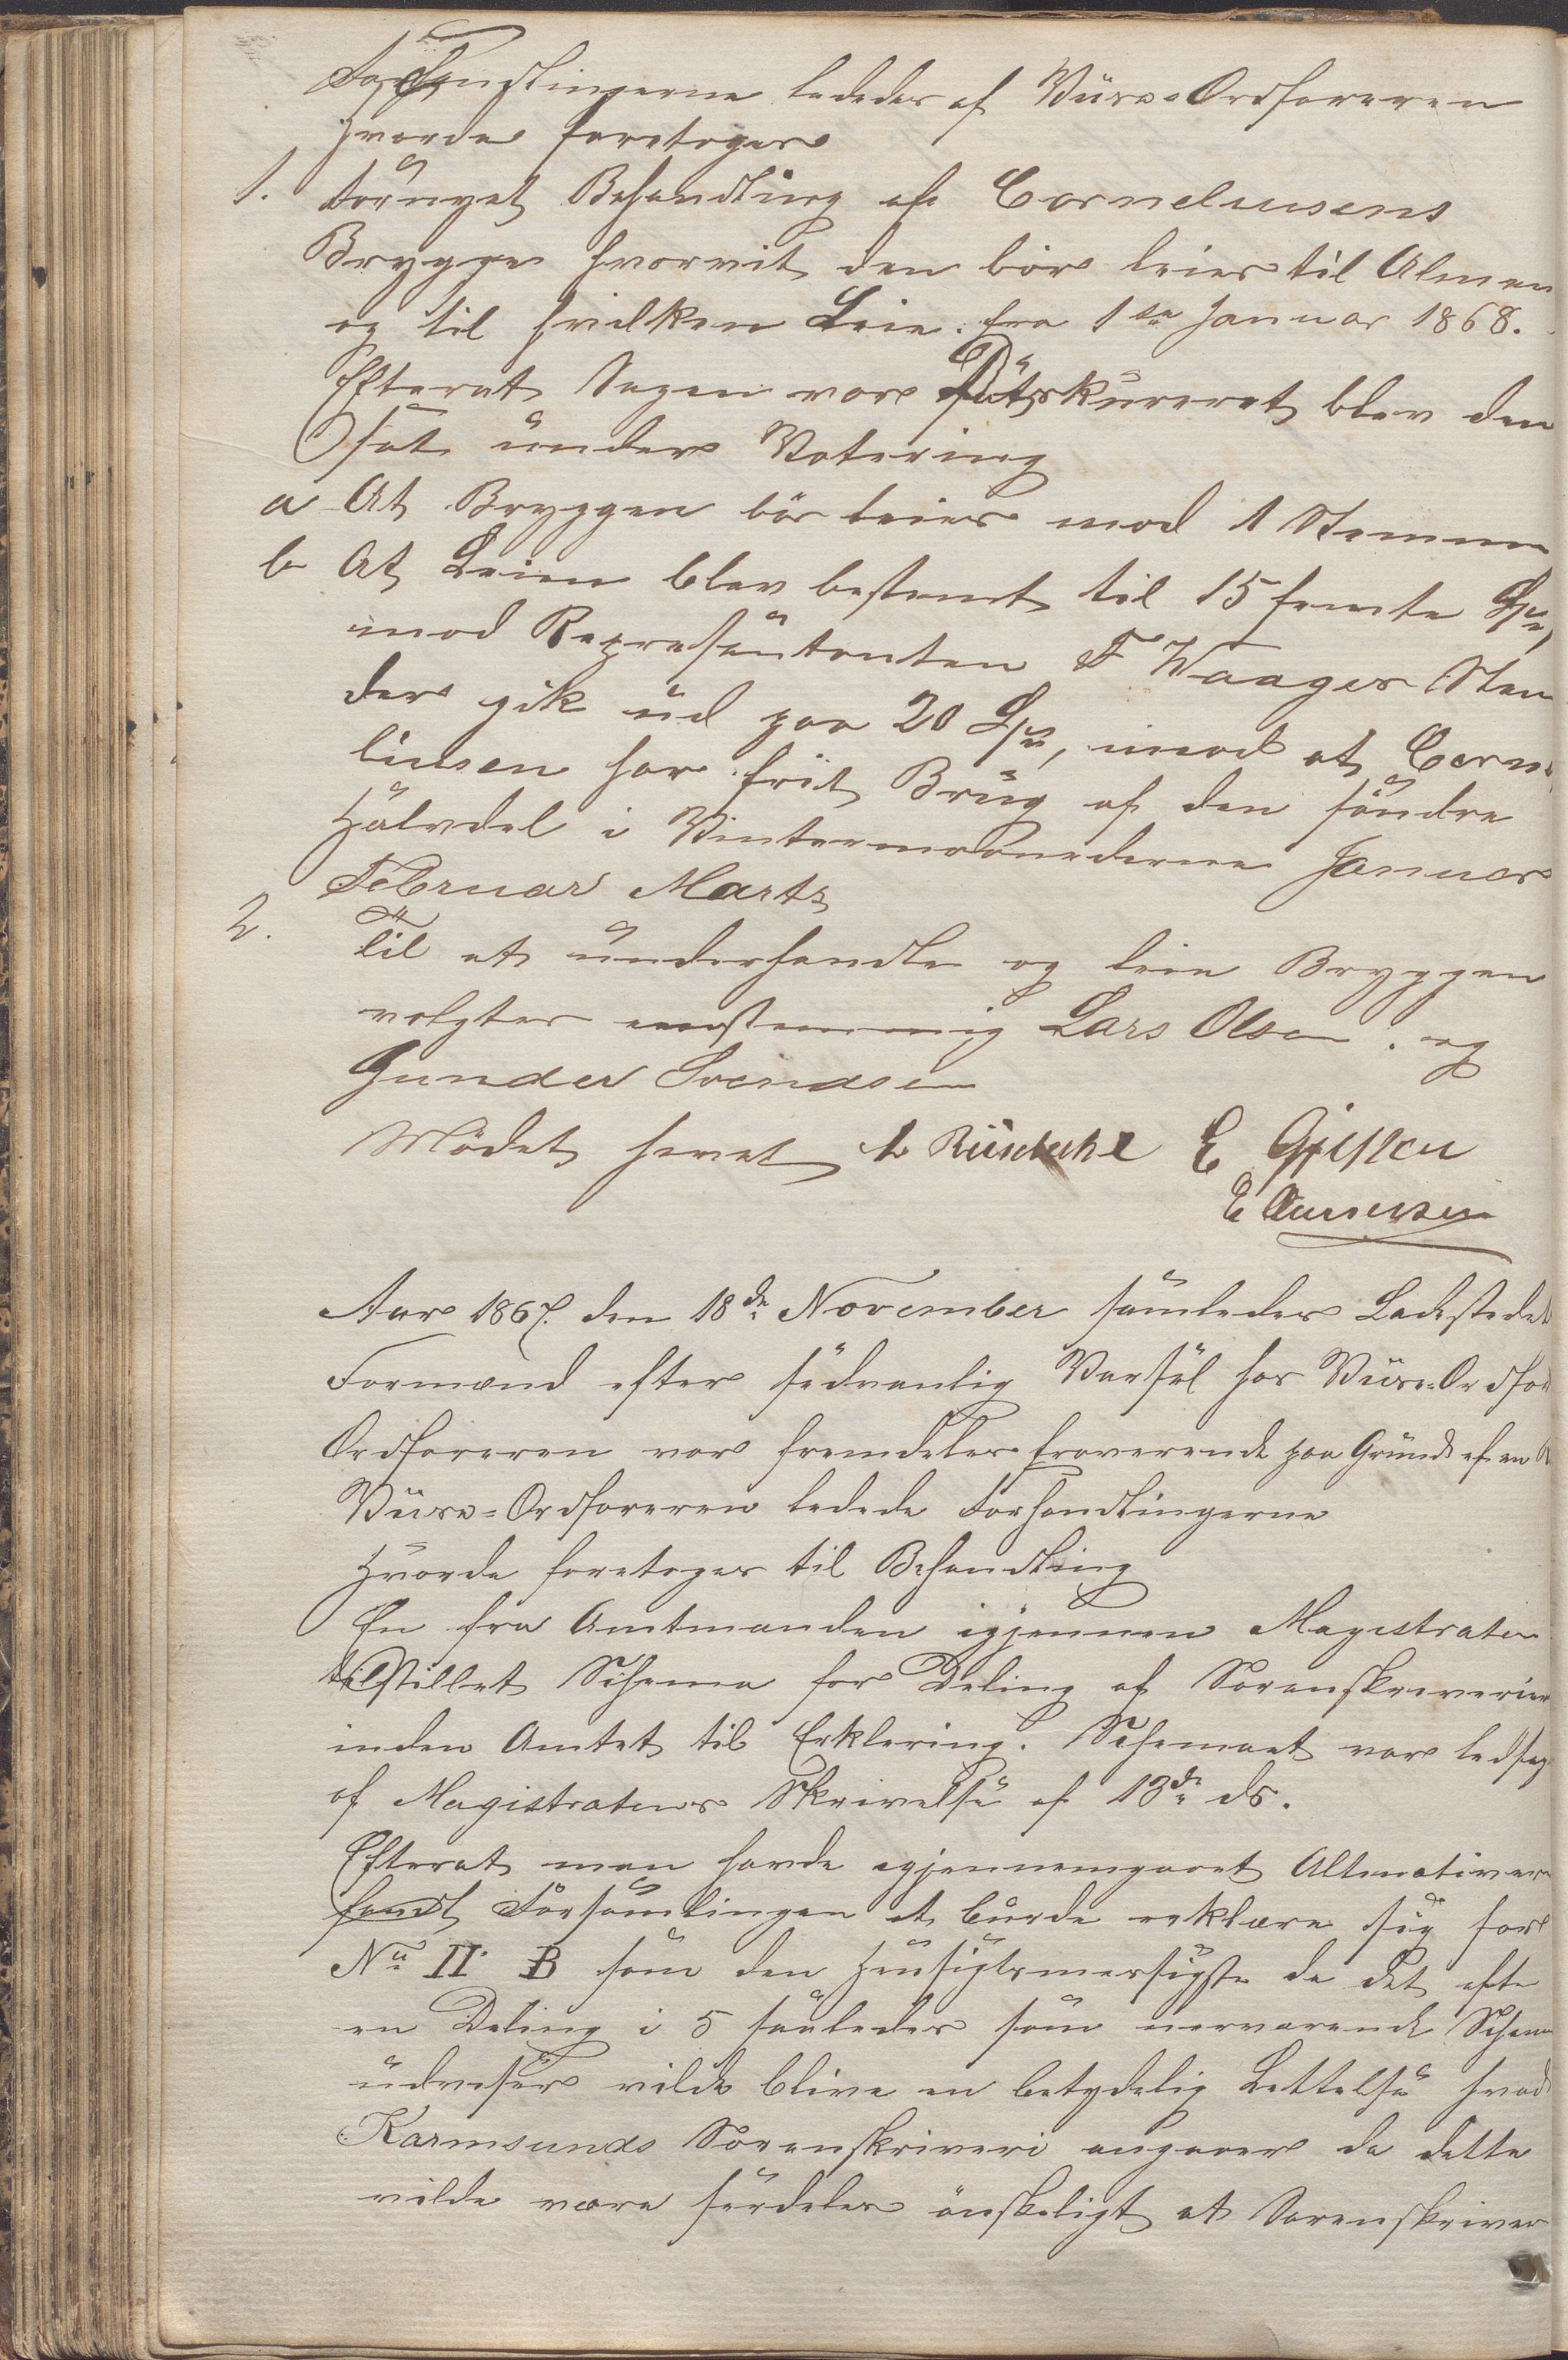 Forhandlingerne lededes af Viise-Ordføreren
hvorda foretoges
1. Fornyet Behandling af Corneliusens
Brygge hvorvit den bør leies til Almen
og til hvilken Leie. fra 1ste Januar 1868.
Efterat Sagen var Diskureret blev den
sat under Votering
a At Bryggen bør leies mod 1 Stemme
b At Leien blev bestemt til 15 femten Spd,
mod Repræsentanten F Waages Stem
der gik ud paa 20 Spd, imod at Corne
liusen har frit Brug af den søndre
Halvdel i Vintermaanederne Januar
Februar Marts
2. Til at underhandle og leie Bryggen
valgtes eenstemmig Lars Olsen. og
Gunder Svendsen
Mødet hævet E
E
Aar 1867. den 18de November samledes Ladestedets
Formænd efter sædvanlig Varsel hos Viise-Ordfør
Ordføreren var fremdeles fraværende paa Grund af en
Viise-Ordføreren ledede Forhandlingerne
Hvorda foretoges til Behandling
En fra Amtmanden igjennem Magistraten
tilstillet Schema for Deling af Sorenskriverier
inden Amtet til Erklering. Schemaet var ledsag
af Magistratens Skrivelse af 13de ds.
Efterat man havde igjennemgaaet Alternativerne
fandt Forsamlingen at burde erklære sig for
No II B som den Hensigtsmessigste da det efter
en Deling i 5 saaledes som nærværende Schema
udviser vilde blive en betydelig Lettelse hvad
Karmsunds Sorenskriveri angaaer da dette
vilde være særdeles ønskeligt at Sorenskriver